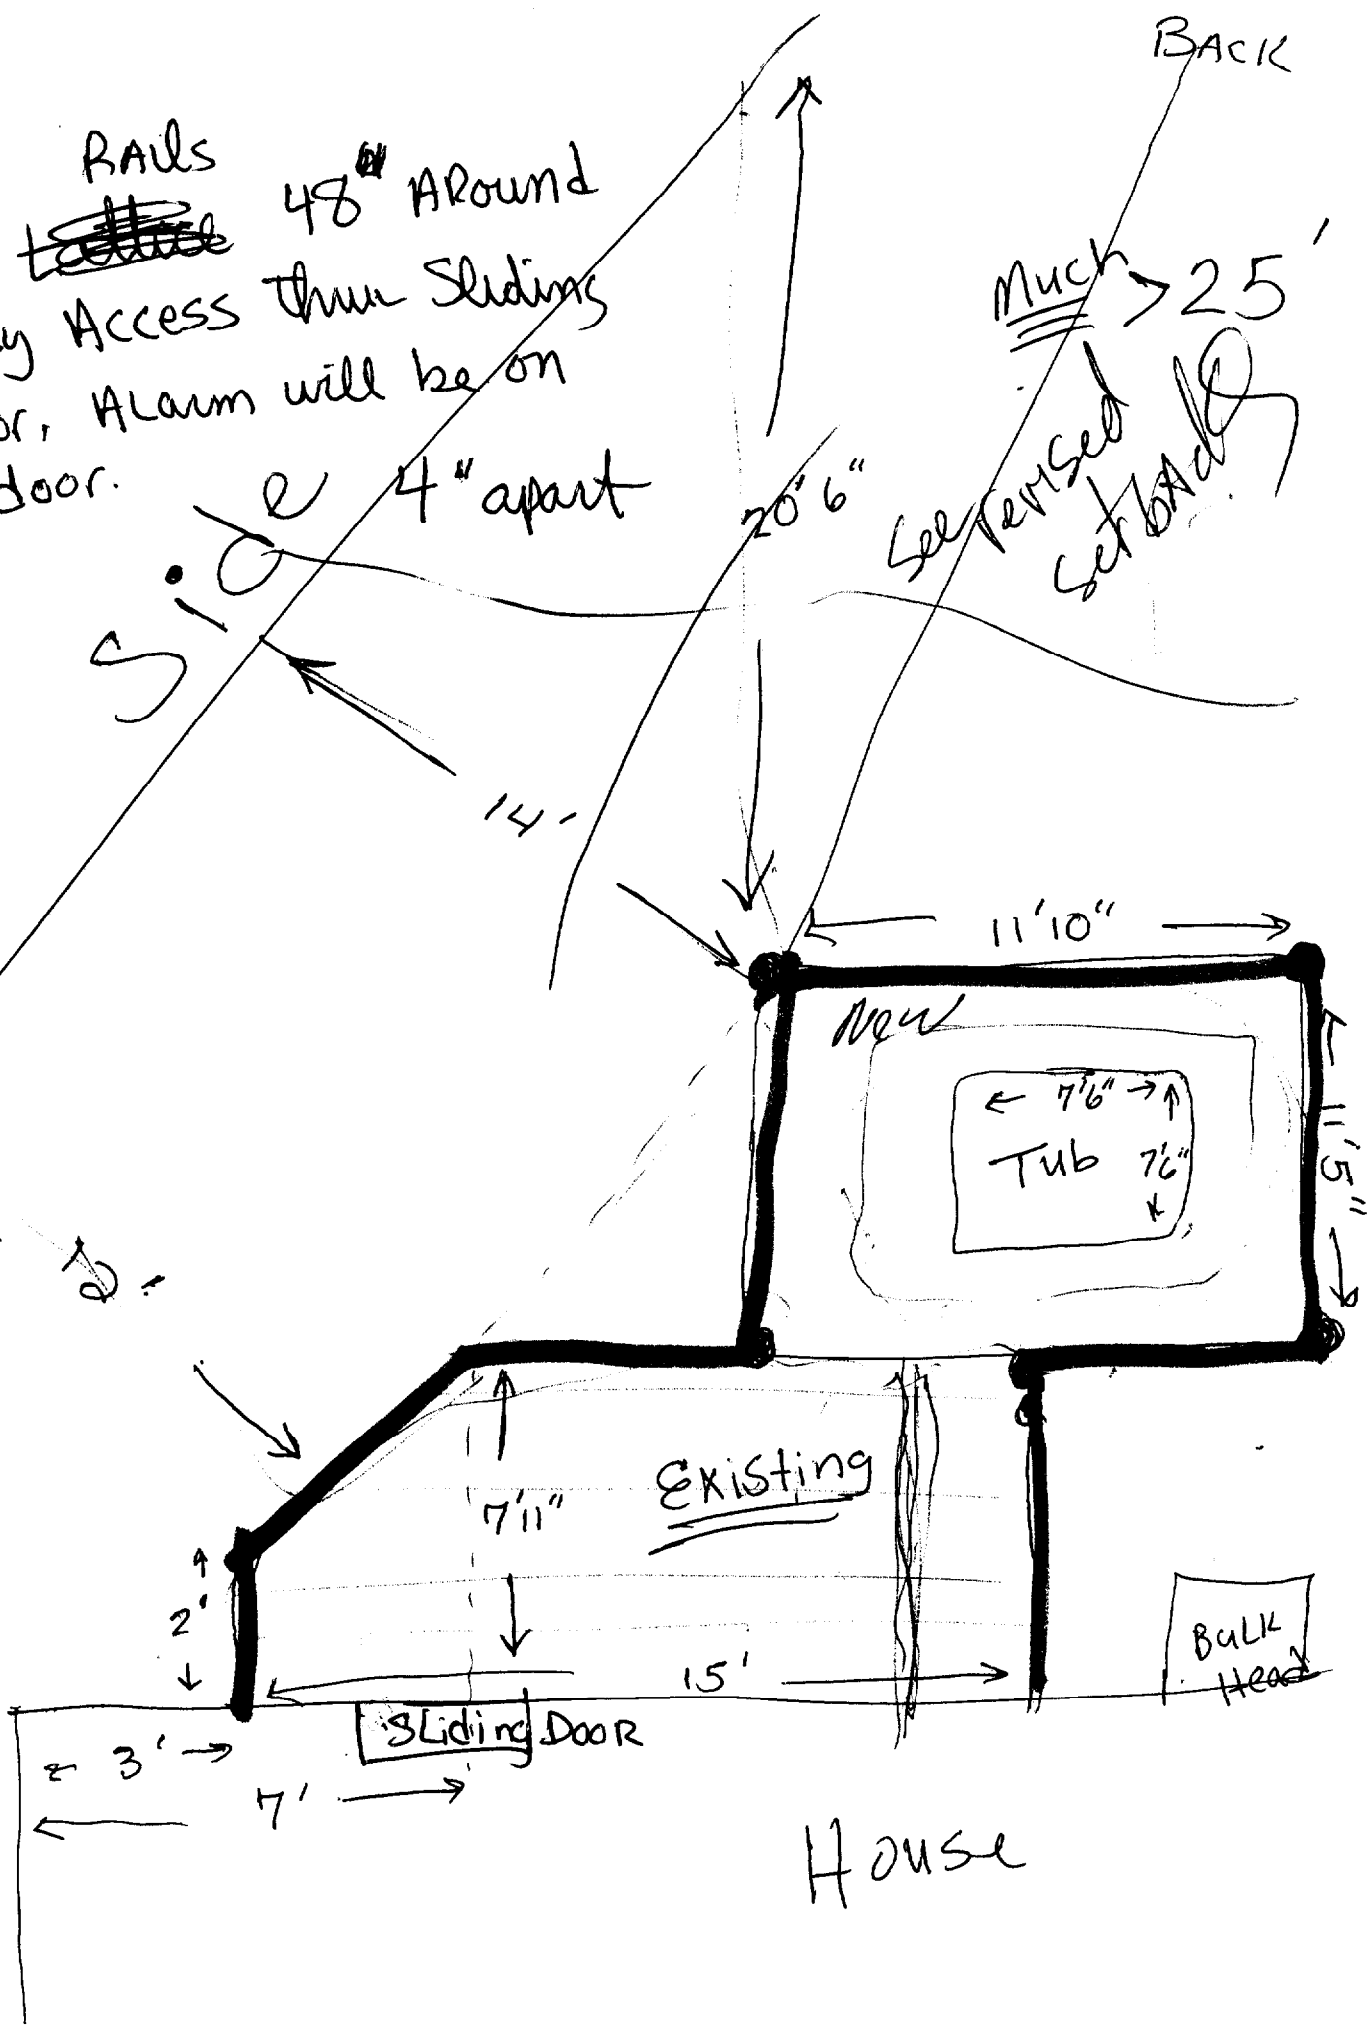 BACK
RAils
48" ARound
Access thru Sliding
ALarm will be on
door.
4" apart
Side
Much > 25'
See revised
setback
20'6"
14'
11'10"
New
7'6"
Tub
7'6"
11'5"
Existing
7'11"
2'
15'
Bulk
Head
Sliding DOOR
3'
7'
House